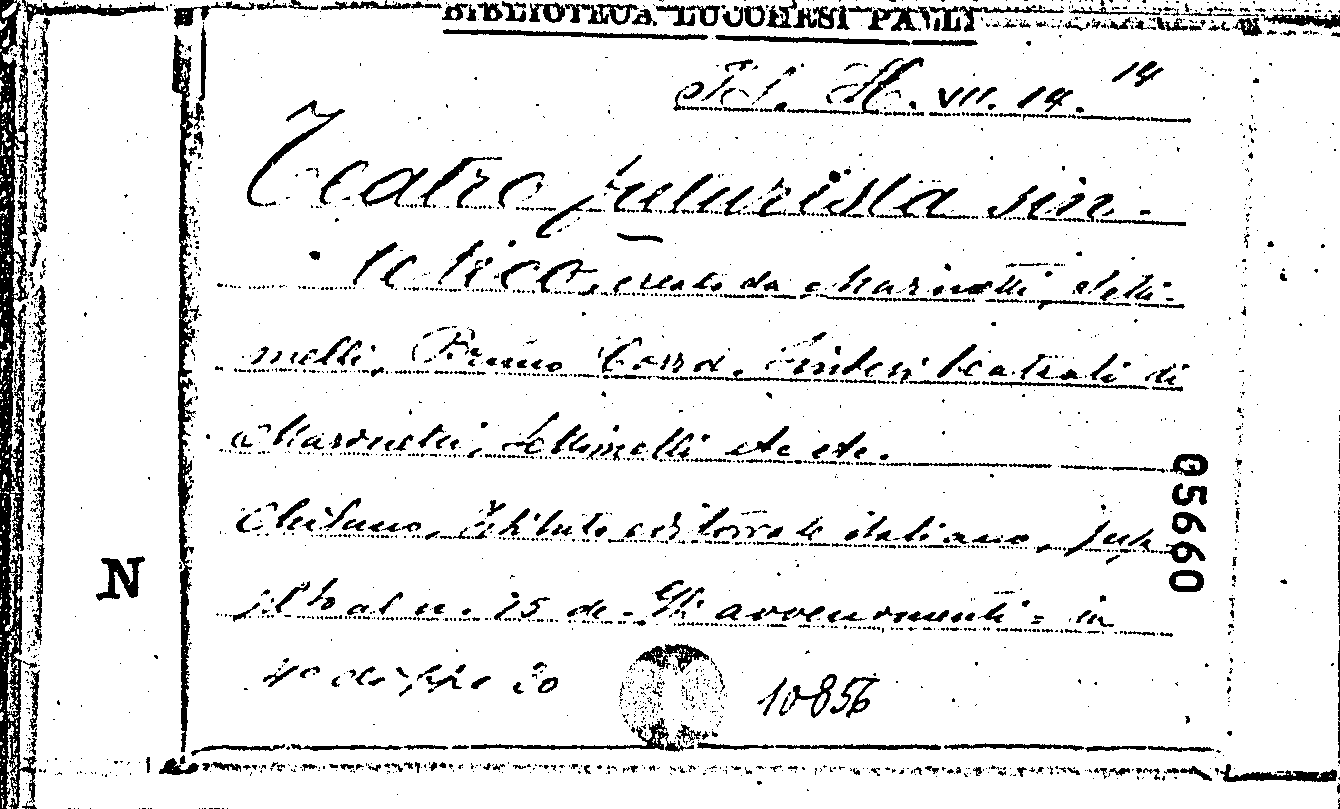 BIBLIOTECA LUCCHESI PALLI
H. VII. 14. 14
Teatro futurista sin-
tetico, creato da Marinetti, Setti-
melli, Bruno Corra. Sintesi teatrali di
Marinetti, Settimelli etc etc.
Milano, Istituto editoriale italiano, sup
al n. 15 de "Gli avvenimenti" in
4° di pp. 30
10856
05660
N